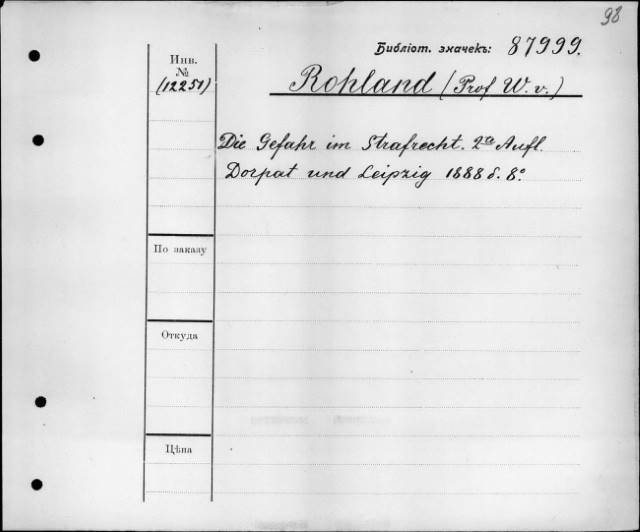 98
Библіот. значекъ: 87999.
Инв.
№
(12251)
Rohland (Prof W. v.)
Die Gefahr im Strafrecht. 2te Aufl.
Dorpat und Leipzig 1888 г. 8°
По заказу
Откуда
Цѣна